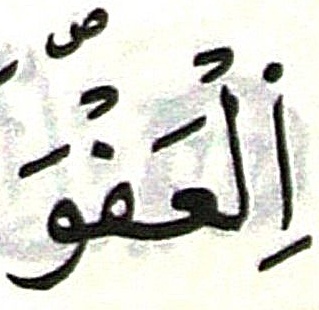 اِ۬لْعَفْوَۖ